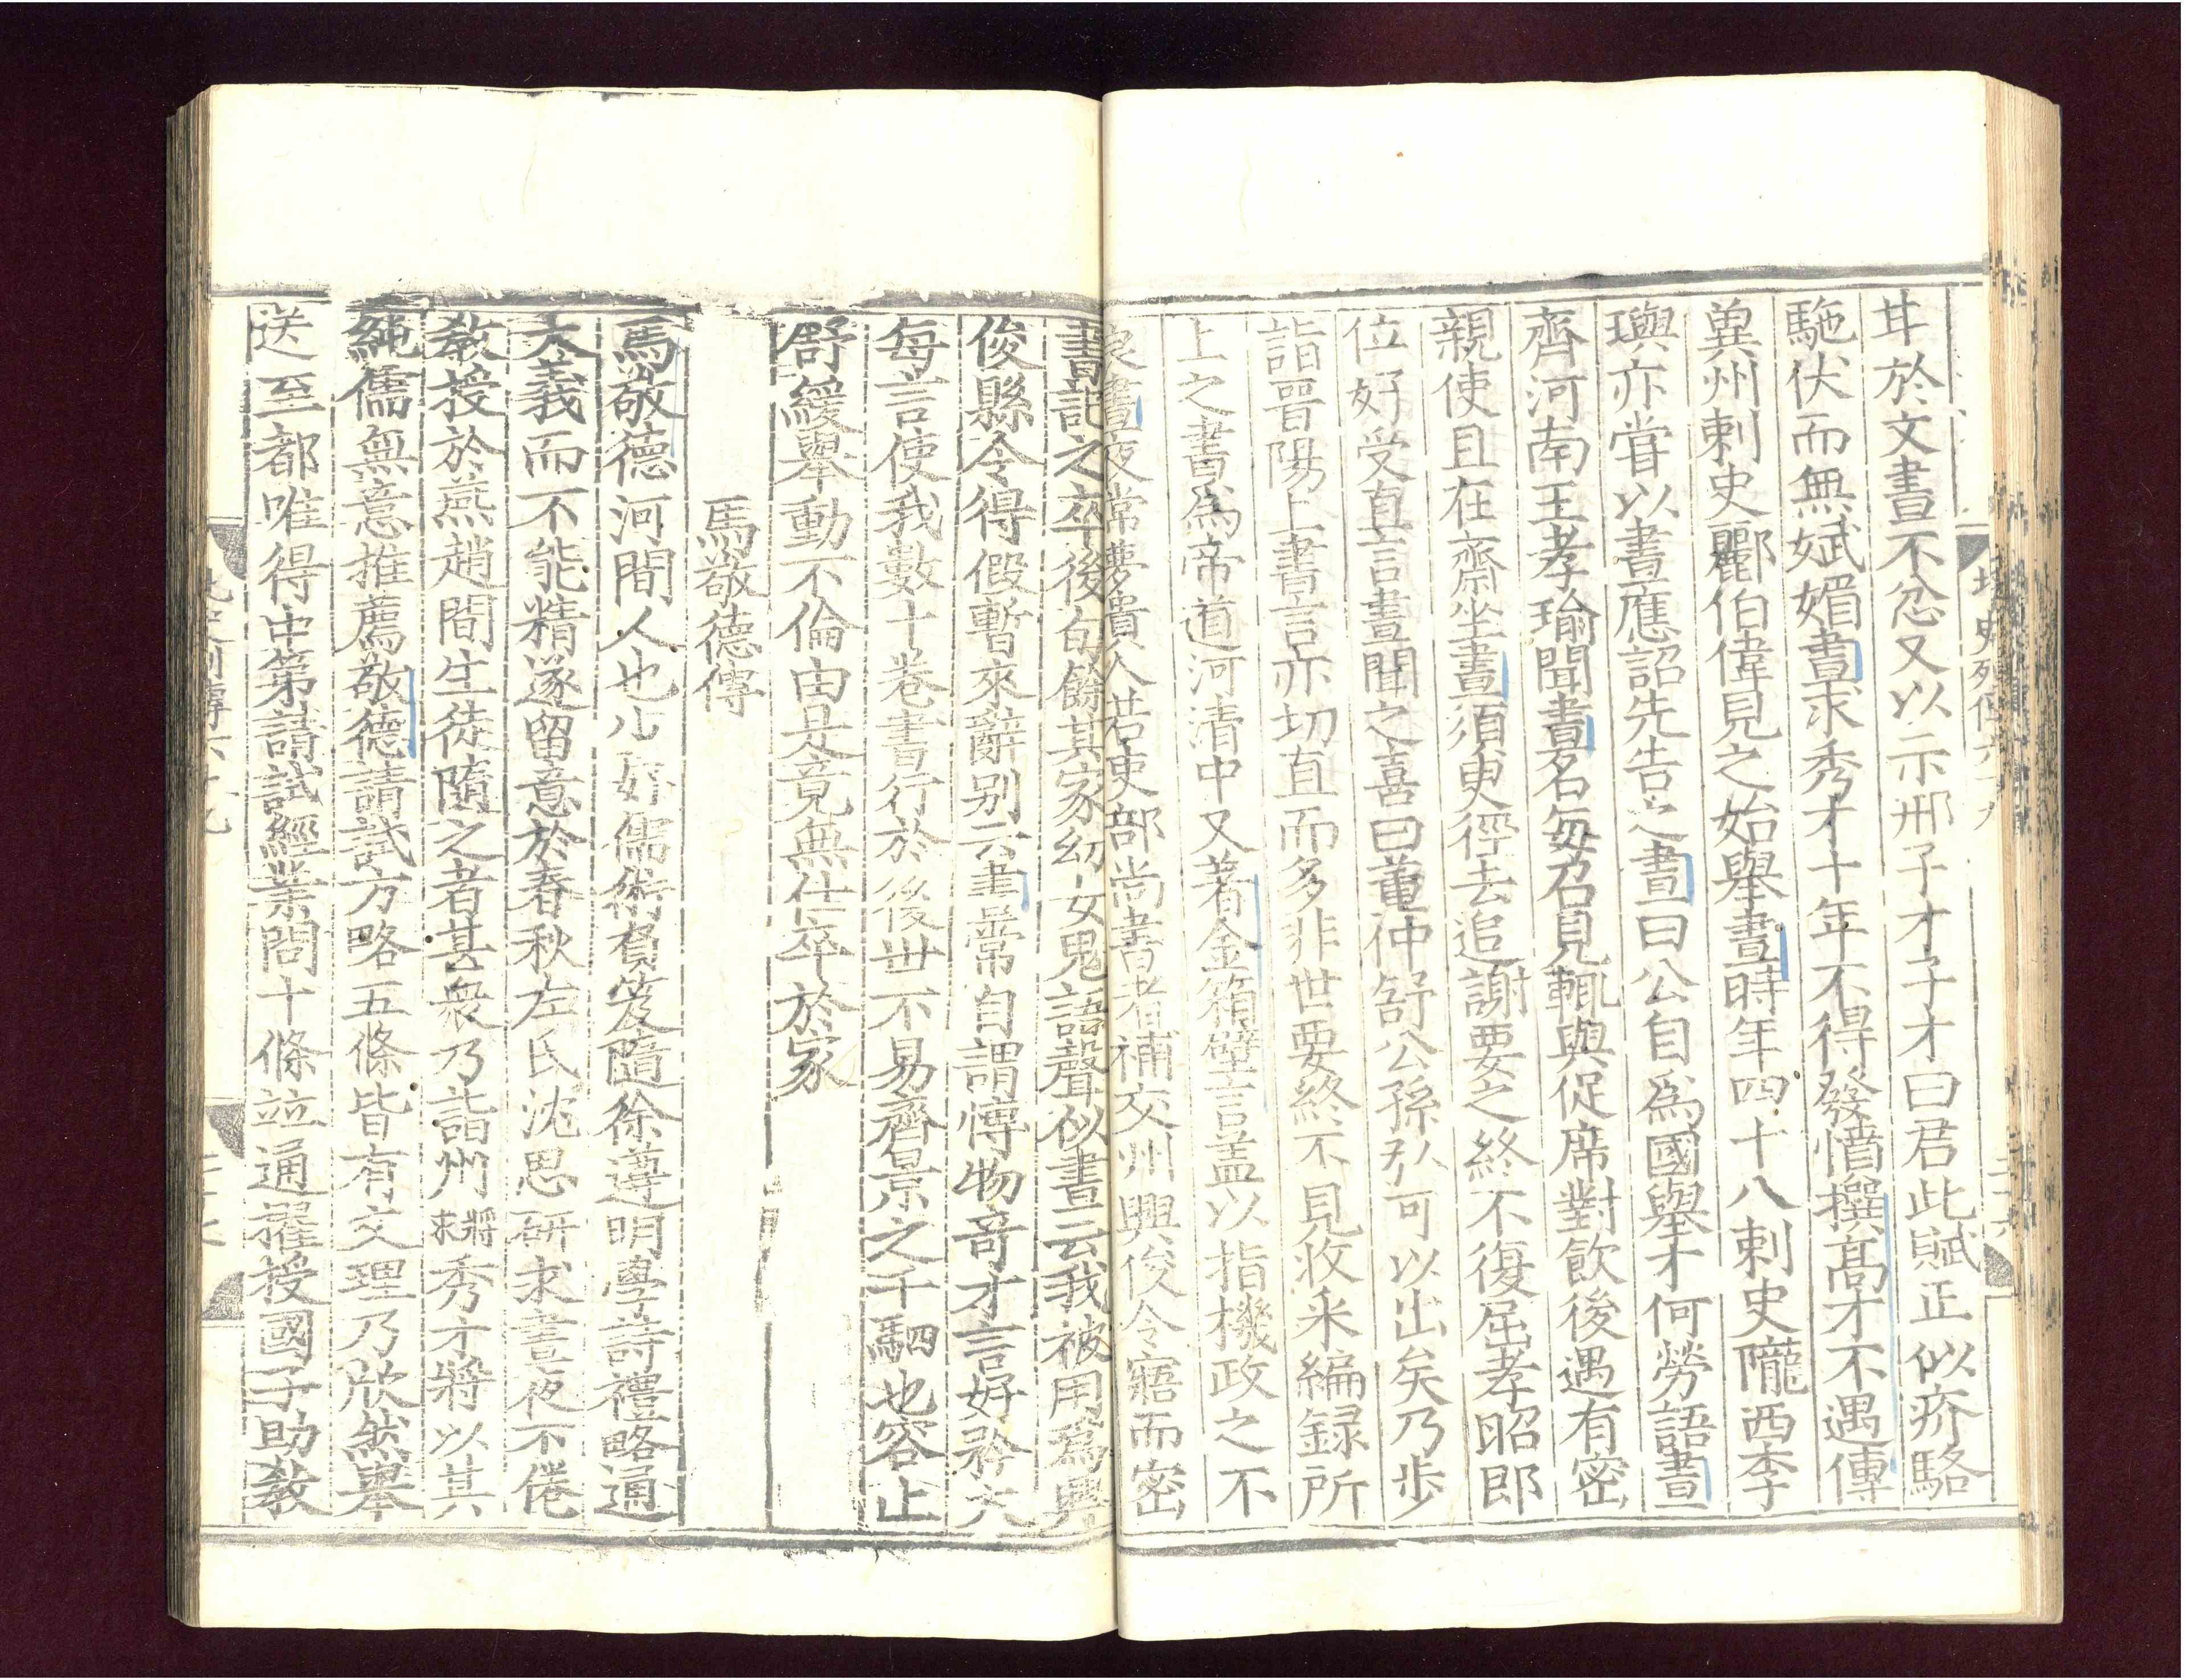 北史列傳六十九
二十六
甘於文晝不忿又以示邢子才子才曰君此賦正似疥駱
駞伏而無斌媚晝求秀才十年不得發憤撰高才不遇傳
兾州刺史酈伯偉見之始舉晝時年四十八刺史隴西李
璵亦甞以晝應詔先告之晝曰公自爲國舉才何勞語晝
齊河南王孝瑜聞晝名每召見輒與促席對飮後遇有密
親使且在齋坐晝須臾徑去追謝要之終不復屈孝昭即
位好受直言晝聞之喜曰董仲舒公孫弘可以出矣乃步
詣晋陽上書言亦切直而多非世要終不見收采編録所
上之書爲帝道河清中又著金箱壁言盖以指機政之不
良晝夜常夢貴人若吏部尚書者補交州興俊令寤而密
書記之卒後旬餘其家幼女鬼語聲似晝云我被用爲興
俊縣令得假暫來辭别云晝常自謂愽物竒才言好矜大
每言使我數十卷書行於後世不易齊景之千駟也容止
舒緩舉動不倫由是竟無仕卒於家
馬敬德傳
馬敬德河間人也少好儒術負笈隨徐遵明學詩禮略通
大義而不能精遂留意於春秋左氏沈思研求晝夜不倦
敎授於燕趙間生徒隨之者甚衆乃詣州將求秀才將以其
純儒無意推薦敬德請試方略五條皆有文理乃欣然舉
送至都唯得中第請試經業問十條竝通擢授國子助敎
北史列傳六十九